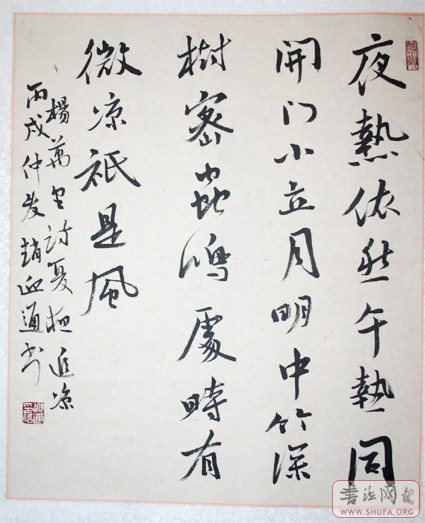 夜熱依然午熱同
開门小立月明中竹深
樹密蟲鳴處時有
微凉祇是風
楊萬里詩夏夜追凉
丙戌仲夏趙迎通书
書法网
WWW.SHUFA.ORG